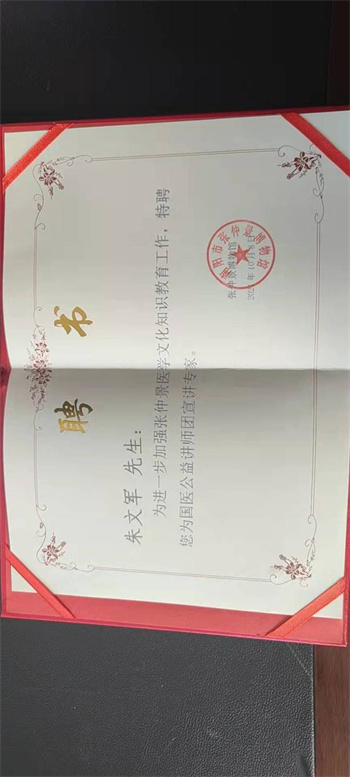 聘书
朱文军 先生：
为进一步加强张仲景医学文化知识教育工作，特聘
您为国医公益讲师团宣讲专家。
张仲景博物馆